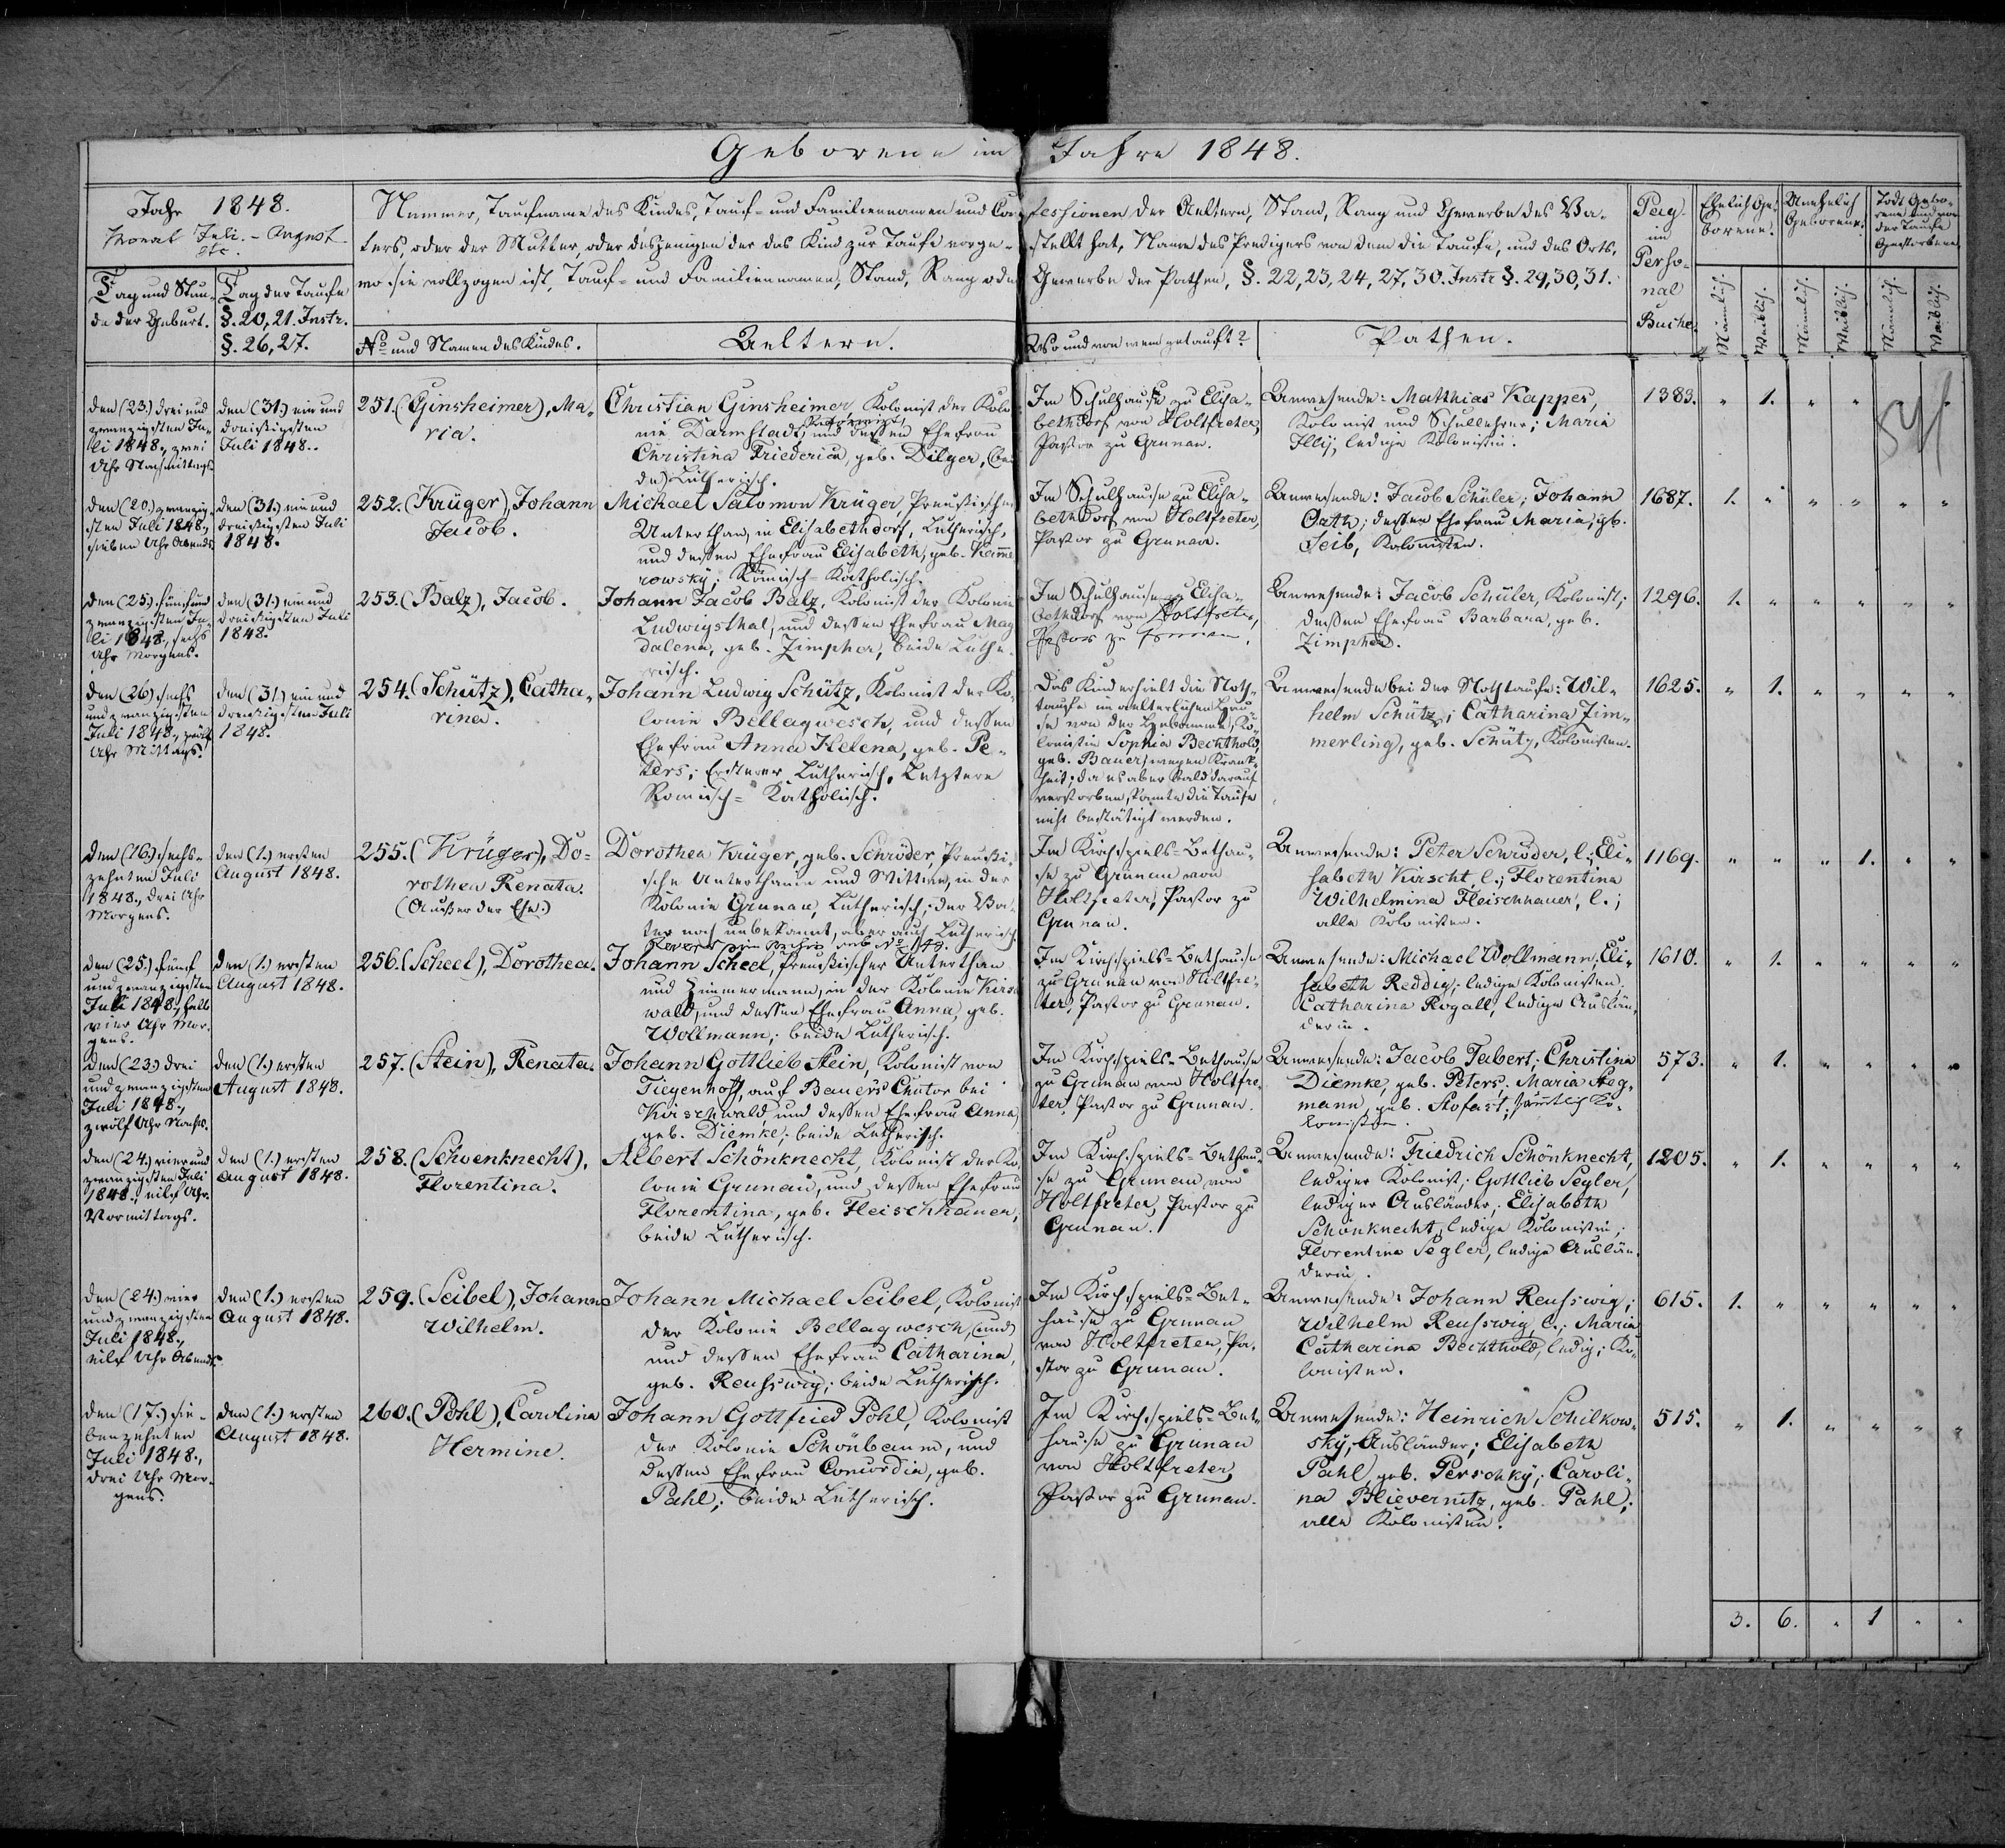 Geborene im Jahre 1848.
Jahr 1848.
Monat Juli. - August
etc.
Tag und Stun-
de der Geburt.
Tag der Taufe
§. 20, 21. Instr.
§. 26, 27.
Nummer, Taufname des Kindes, Tauf- und Familiennamen und Con-
fessionen der Aeltern, Stand, Rang und Gewerbe des Va-
ters, oder der Mutter, oder desjenigen der das Kind zur Taufe vorge-
stellt hat, Name des Predigers von dem die Taufe, und des Orts,
wo sie vollzogen ist, Tauf- und Familiennamen, Stand, Rang oder
Gewerbe der Pathen, §. 22, 23, 24, 27, 30. Instr. §. 29, 30, 31.
No und Namen des Kindes.
Aeltern.
Wo und von wem getauft?
Pathen.
Pag.
im
Perso-
nal
Buche.
Ehelich Ge-
borene.
Unehelich
Geborene.
Todt Gebo-
rene und vor
der Taufe
Gestorbene
Männlich.
Weiblich.
Männlich.
Weiblich.
Männlich.
Weiblich.
den (23.) drei und
zwanzigsten Ju-
li 1848., zwei
Uhr Nachmittags
den (31.) ein und
dreißigsten
Juli 1848.
251. (Ginsheimer), Ma-
ria.
Christian Ginsheimer, Kolonist der Kolo-
nie Darmstadt, und dessen Ehefrau
Christina Friederica, geb. Dilger, (bei-
de) Lutherisch.
Im Schulhause zu Elisa-
bethdorf von Holtfreter,
Pastor zu Grunau.
Anwesende: Matthias Kappes,
Kolonist und Schullehrer; Maria
Illij, ledige Kolonistin.
1383. " 1. " " " "
den (20.) zwanzig-
sten Juli 1848.,
sieben Uhr Abends
den (31.) ein und
dreißigsten Juli
1848.
252. (Krüger), Johann
Jacob.
Michael Salomon Krüger, Preußischer
Unterthan, in Elisabethdorf, Lutherisch,
und dessen Ehefrau Elisabeth, geb. Kamme-
rowsky; Römisch-Katholisch.
Im Schulhause zu Elisa-
bethdorf von Holtfreter,
Pastor zu Grunau.
Anwesende: Jacob Schüler; Johann
Orth; dessen Ehefrau Maria, gb.
Seib, Kolonisten.
1687. 1. " " " " "
den (25.) fünfund
zwanzigsten Ju-
li 1848., sechs
Uhr Morgens.
den (31.) ein und
dreißigsten Juli
1848.
253. (Balz), Jacob.
Johann Jacob Balz, Kolonist der Kolonie
Ludwigsthal, und dessen Ehefrau Mag-
dalena, geb. Zimpher, beide Luthe-
risch.
Im Schulhause zu Elisa-
bethdorf von Holtfreter,
Pastor zu Grunau.
Anwesende: Jacob Schüler, Kolonist;
dessen Ehefrau Barbara, geb.
Zimpher.
1296. 1. " " " " "
den (26.) sechs
und zwanzigsten
Juli 1848., zwölf
Uhr Mittags.
den (31.) ein und
dreißigsten Juli
1848.
254. (Schütz), Catha-
rina.
Johann Ludwig Schütz, Kolonist der Ko-
lonie Bellagwesch, und dessen
Ehefrau Anna Helena, geb. Pe-
ters; Ersterer Lutherisch, Letztere
Römisch-Katholisch.
Das Kind erhielt die Noth-
taufe im aelterlichen Hau-
se von der Hebamme, Ko-
lonistin Sophia Bechthold,
geb. Bauer, wegen Krank-
heit; da es aber bald darauf
verstorben, konnte die Taufe
nicht bestätigt werden.
Anwesende bei der Nothtaufe: Wil-
helm Schütz; Catharina Zim-
merling, geb. Schütz, Kolonisten.
1625. " 1. " " " "
den (16.) sechs-
zehnten Juli
1848., drei Uhr
Morgens.
den (1.) ersten
August 1848.
255. (Krüger), Do-
rothea Renata.
(Außer der Ehe.)
Dorothea Krüger, geb. Schröder, Preußi-
sche Unterthanin und Wittwe, in der
Kolonie Grunau, Lutherisch; der Va-
ter noch unbekannt, aber auch Lutherisch.
Im Kirchspiels-Bethau-
se zu Grunau von
Holtfreter, Pastor zu
Grunau.
Anwesende: Peter Schröder, l.; Eli-
sabeth Kirscht, l.; Florentina
Wilhelmina Fleischhauer, l.;
alle Kolonisten.
1169. " " " 1. " "
den (25.) fünf
und zwanzigsten
Juli 1848., halb
vier Uhr Mor-
gens.
den (1.) ersten
August 1848.
256. (Scheel), Dorothea.
Johann Scheel, Preußischer Unterthan
und Zimmermann, in der Kolonie Kirsch-
wald, und dessen Ehefrau Anna, geb.
Wollmann; beide Lutherisch.
Im Kirchspiels-Bethause
zu Grunau von Holtfre-
ter, Pastor zu Grunau.
Anwesende: Michael Wollmann, Eli-
sabeth Reddig, ledige Kolonisten,
Catharina Rogall, ledige Auslän-
derin.
1610. " 1. " " " "
den (23.) drei
und zwanzigsten
Juli 1848.,
zwölf Uhr Nachts.
den (1.) ersten
August 1848.
257. (Stein), Renata.
Johann Gottlieb Stein, Kolonist von
Tiegenhoff, auf Bauers Chutor bei
Kirschwald und dessen Ehefrau Anna,
geb. Diemke; beide Lutherisch.
Im Kirchspiels-Bethause
zu Grunau von Holtfre-
ter, Pastor zu Grunau.
Anwesende: Jacob Tabert; Christina
Diemke, geb. Peters; Maria Steg-
mann, geb. Stofast; sämtlich Ko-
lonisten.
573. " 1. " " " "
den (24.) vier und
zwanzigsten Juli
1848., eilf Uhr
Vormittags.
den (1.) ersten
August 1848.
258. (Schoenknecht),
Florentina.
Albert Schönknecht, Kolonist der Ko-
lonie Grunau, und dessen Ehefrau
Florentina, geb. Fleischhauer,
beide Lutherisch.
Im Kirchspiels-Bethau-
se zu Grunau von
Holtfreter, Pastor zu
Grunau.
Anwesende: Friedrich Schönknecht,
lediger Kolonist; Gottlieb Segler,
lediger Ausländer; Elisabeth
Schönknecht, ledige Kolonistin;
Florentina Segler, ledige Auslän-
derin.
1205. " 1. " " " "
den (24.) vier
und zwanzigsten
Juli 1848.,
eilf Uhr Abends.
den (1.) ersten
August 1848.
259. (Seibel), Johann
Wilhelm.
Johann Michael Seibel, Kolonist
der Kolonie Bellagwesch (und)
und dessen Ehefrau Catharina,
geb. Reuswig; beide Lutherisch.
Im Kirchspiels-Bet-
hause zu Grunau
von Holtfreter, Pa-
stor zu Grunau.
Anwesende: Johann Reusswig;
Wilhelm Reusswig, l.; Maria
Catharina Bechthold, ledig; Ko-
lonisten.
615. 1. " " " " "
den (17.) sie-
benzehnten
Juli 1848.,
drei Uhr Mor-
gens.
den (1.) ersten
August 1848.
260. (Pohl), Carolina
Hermine.
Johann Gottfried Pohl, Kolonist
der Kolonie Schönbaum, und
dessen Ehefrau Concordia, geb.
Pahl; beide Lutherisch.
Im Kirchspiels-Bet-
hause zu Grunau
von Holtfreter,
Pastor zu Grunau.
Anwesende: Heinrich Schilkow-
sky, Ausländer; Elisabeth
Pahl, geb. Perschky; Caroli-
na Blievernitz, geb. Pahl;
alle Kolonisten.
515. " 1. " " " "
3. 6. " 1 " "